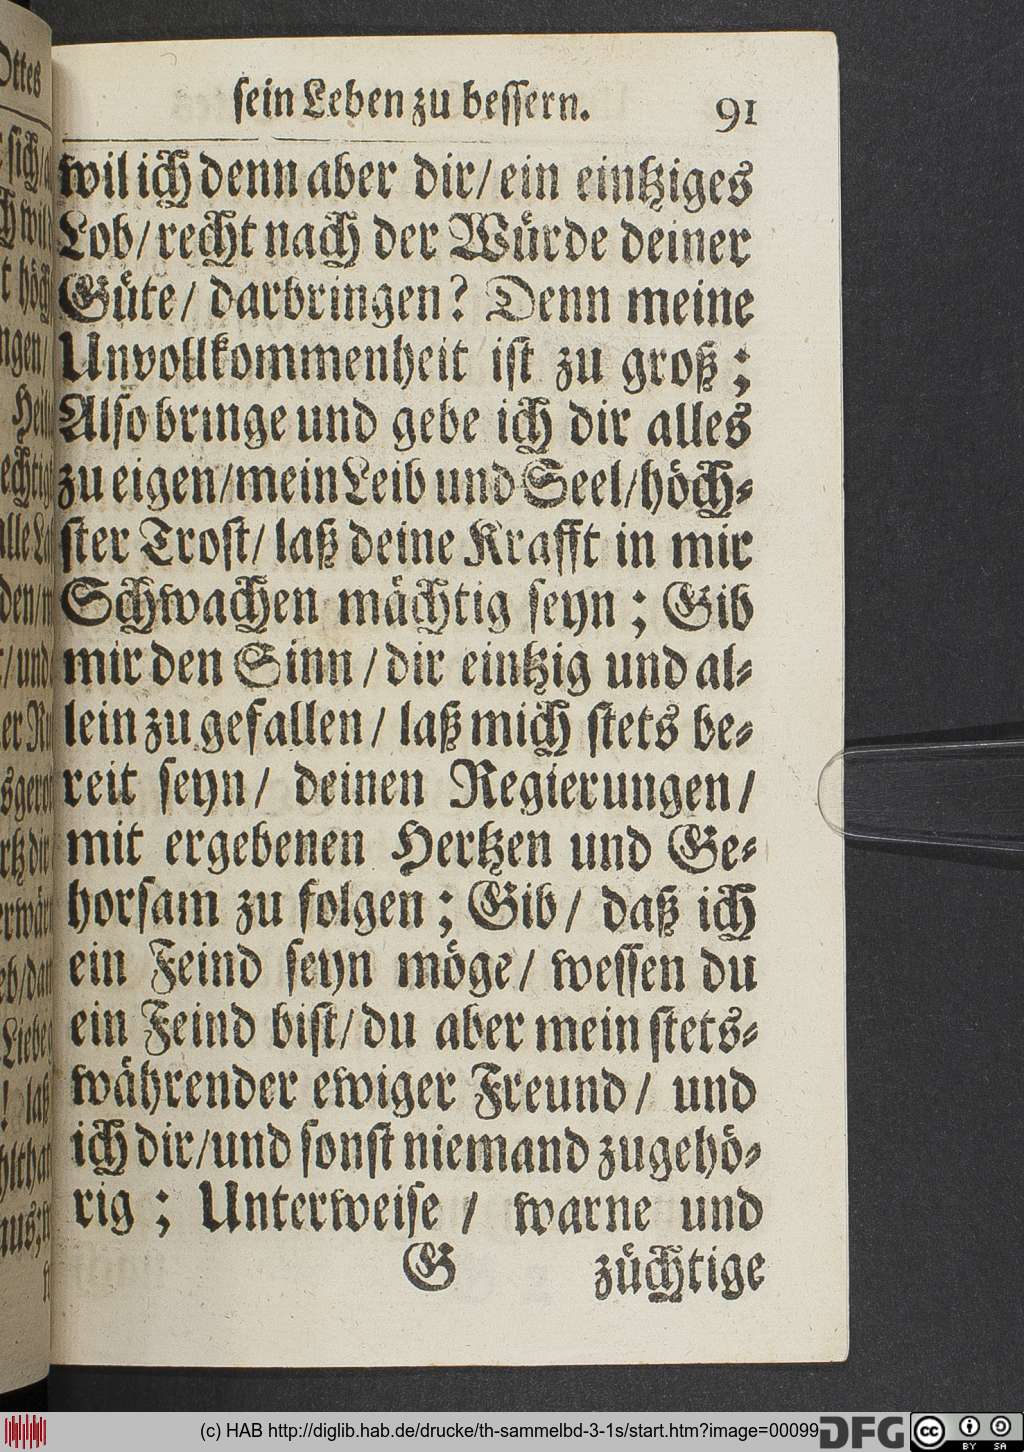 sein Leben zu bessern. 91
wil ich denn aber dir/ ein eintziges
Lob/ recht nach der Würde deiner
Güte/ darbringen? Denn meine
Unvollkommenheit ist zu groß;
Also bringe und gebe ich dir alles
zu eigen/ mein Leib und Seel/ höch-
ster Trost/ laß deine Krafft in mir
Schwachen mächtig seyn; Gib
mir den Sinn/ dir eintzig und al-
lein zu gefallen/ laß mich stets be-
reit seyn/ deinen Regierungen/
mit ergebenen Hertzen und Ge-
horsam zu folgen; Gib/ daß ich
ein Feind seyn möge/ wessen du
ein Feind bist/ du aber mein stets-
währender ewiger Freund/ und
ich dir/ und sonst niemand zugehö-
rig; Unterweise/ warne und
G züchtige
(c) HAB http://diglib.hab.de/drucke/th-sammelbd-3-1s/start.htm?image=00099
DFG cc BY SA